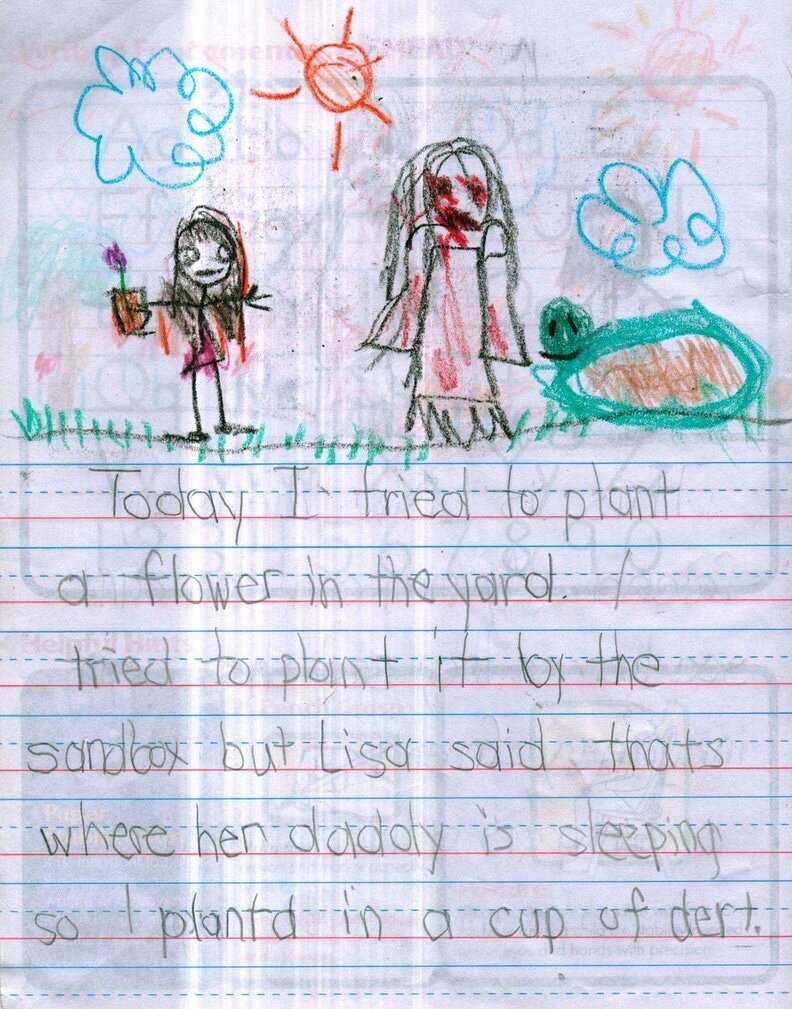 Today I tried to plant
a flower in the yard. I
tried to plant it by the
sandbox but Lisa said thats
where her daddy is sleeping
so I plantd in a cup of dert.